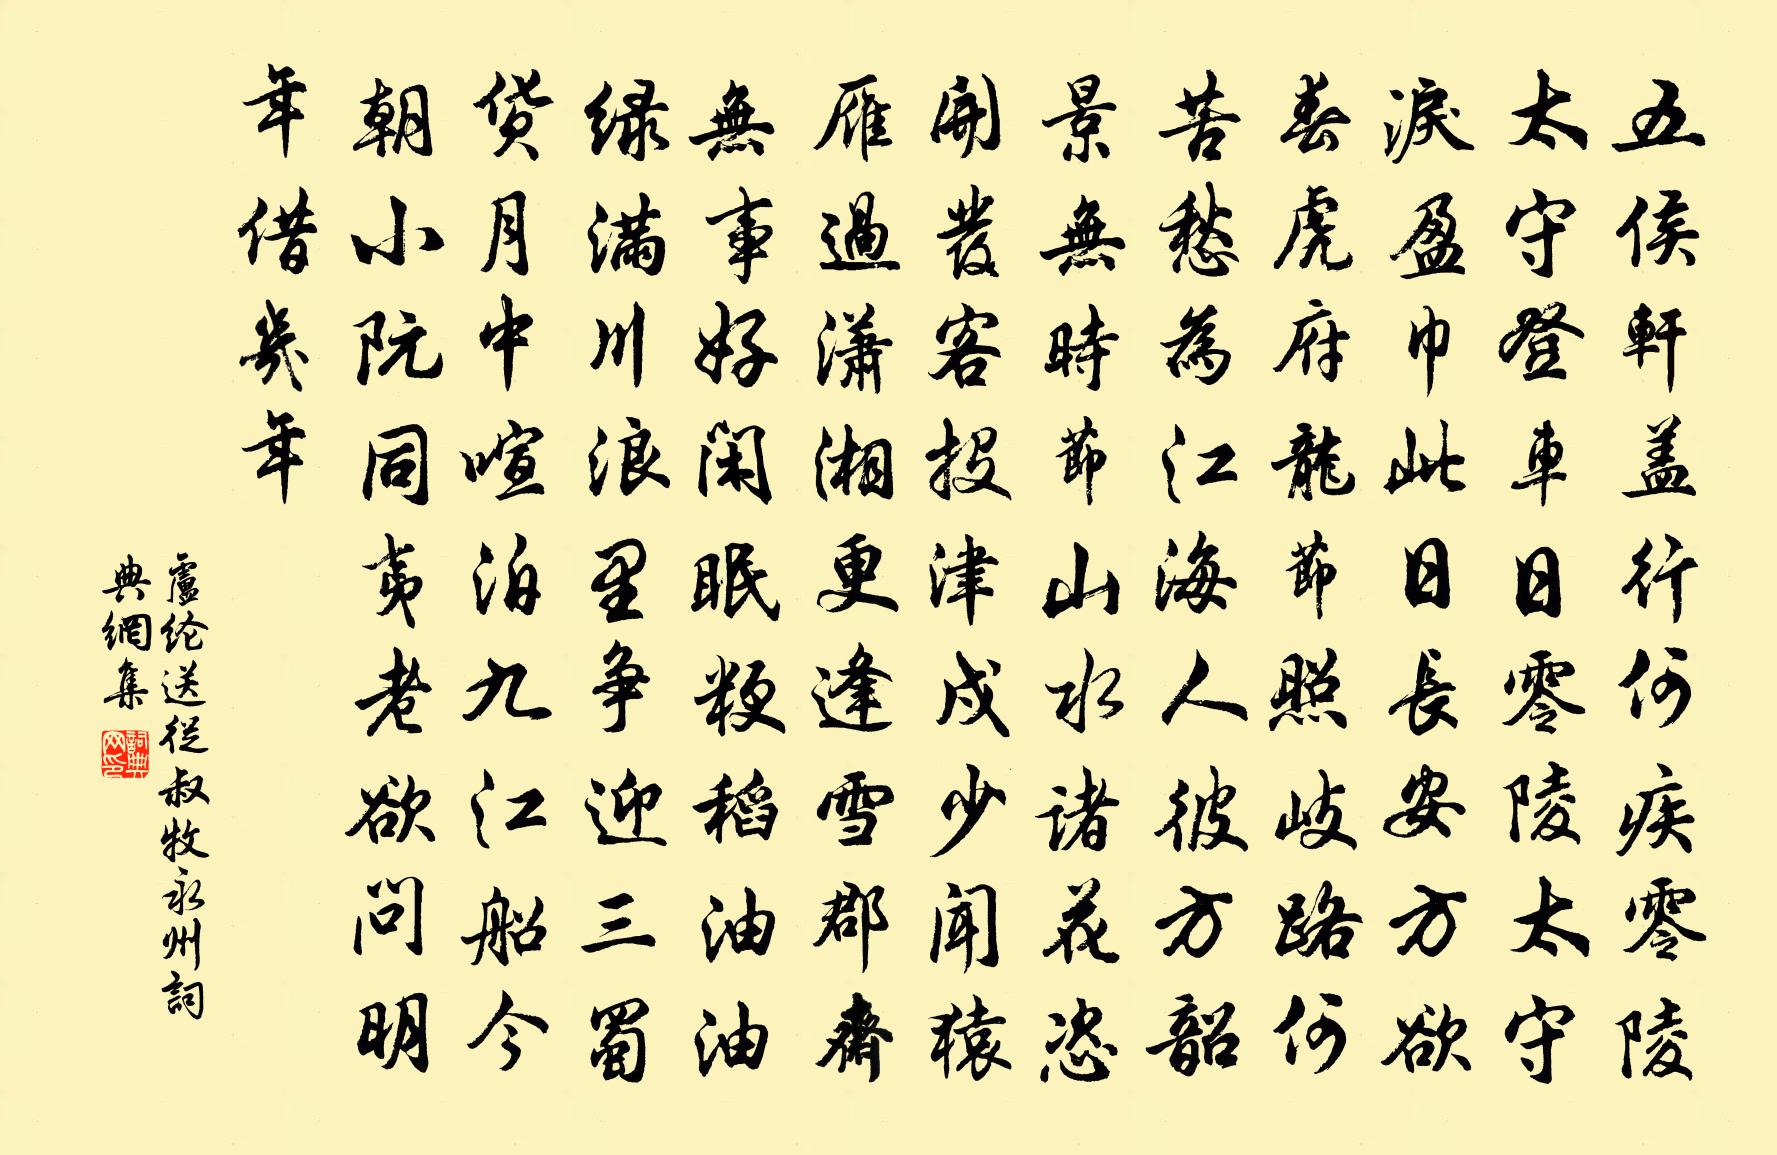 五侯軒盖行何疾零陵
太守登車日零陵太守
淚盈巾此日長安方欲
春虎府龍節照岐路何
苦愁為江海人彼方韶
景無時節山水諸花恣
開發客投津戍少聞猿
雁過瀟湘更逢雪郡齋
無事好閑眠粳稻油油
绿滿川浪里争迎三蜀
货月中喧泊九江船今
朝小阮同夷老欲問明
年借幾年
盧纶送從叔牧永州詞
典網集
詞典
网印